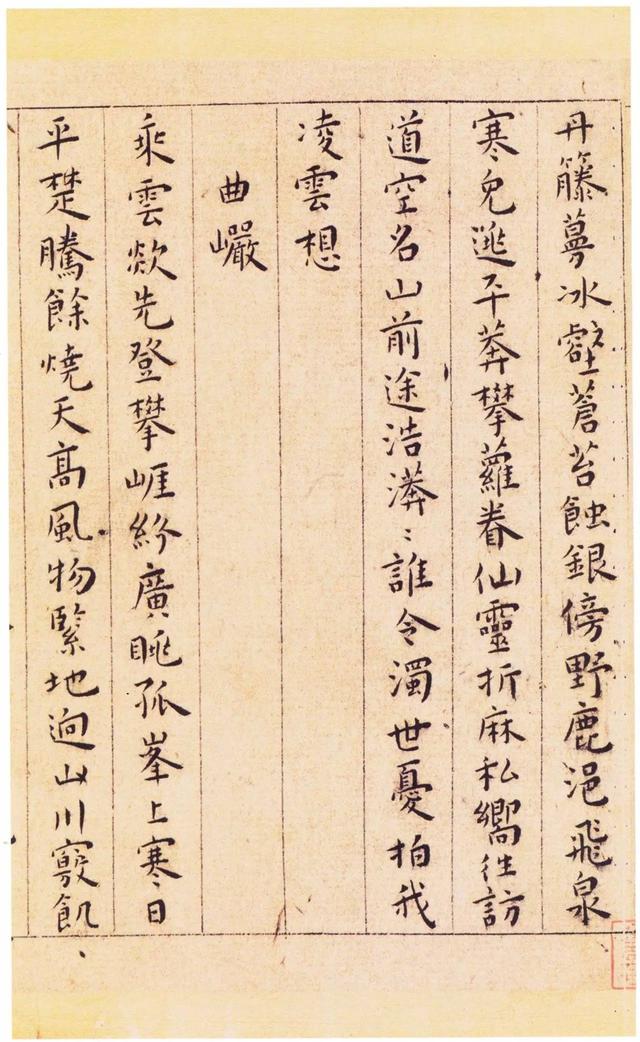 丹籐蔓冰壁蒼苔蝕銀傍野鹿浥飛泉
寒兔逃平莽攀蘿眷仙靈折麻私嚮往訪
道空名山前途浩漭〻誰令濁世憂拍我
凌雲想
曲巖
乘雲欻先登攀崕紛廣眺孤峯上寒日
平楚騰餘燒天高風物緊地迥山川竅飢